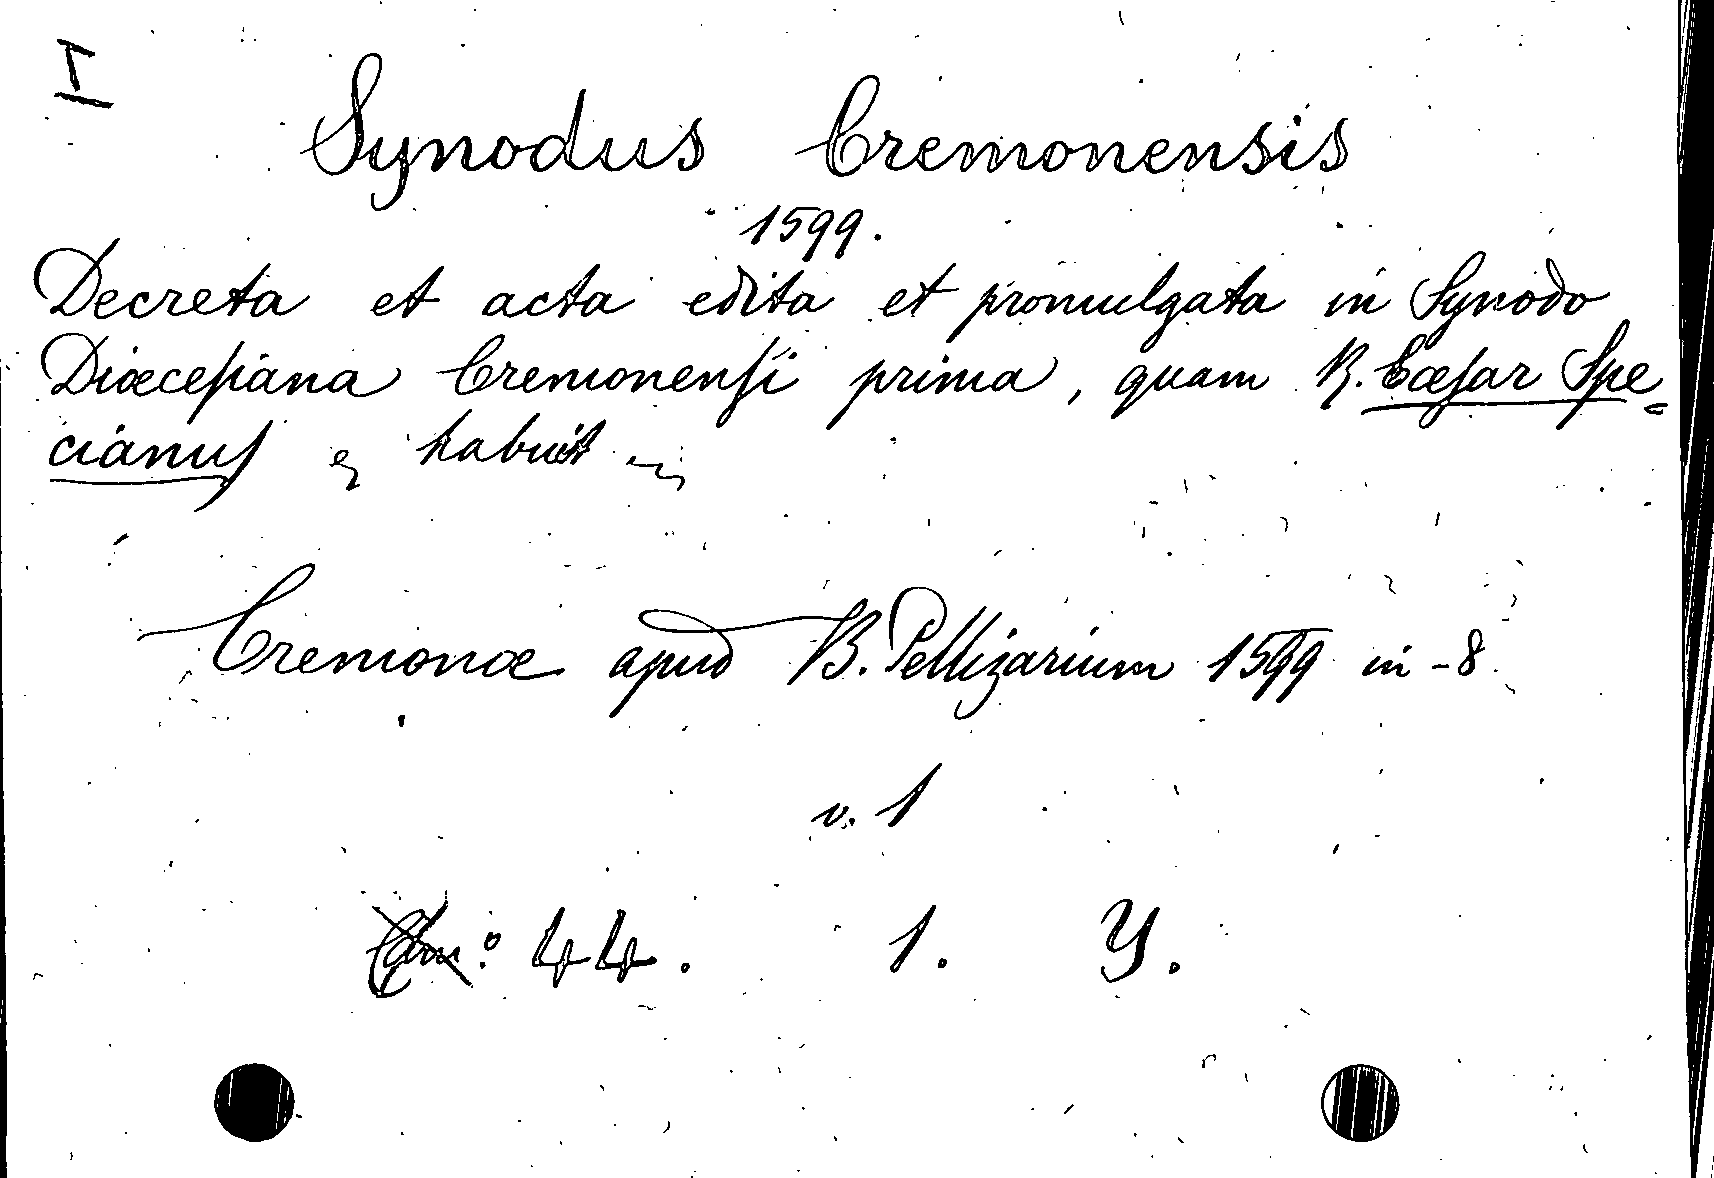 I
Synodus Cremonensis
1599.
Decreta et acta edita et promulgata in Synodo
Diœcesiana Cremonensi prima, quam R. Cæsar Spe=
cianus habuit
Cremonæ apud B. Pellizarium 1599 in-8
v. 1
44. 1. Y.